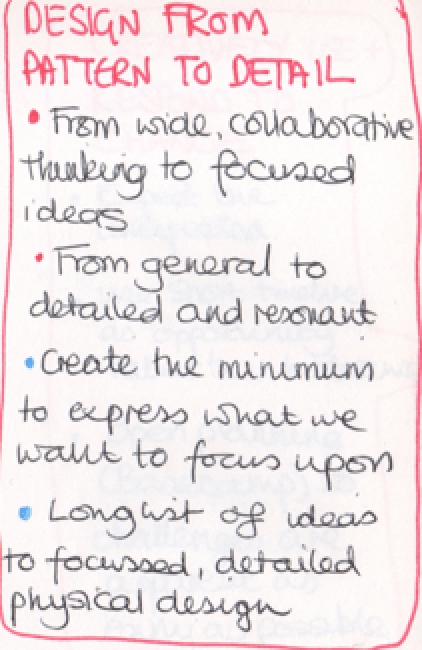 DESIGN FROM
PATTERN TO DETAIL
• From wide, collaborative
thinking to focused
ideas
• From general to
detailed and resonant
• Create the minimum
to express what we
want to focus upon
• Long list of ideas
to focussed, detailed
physical design